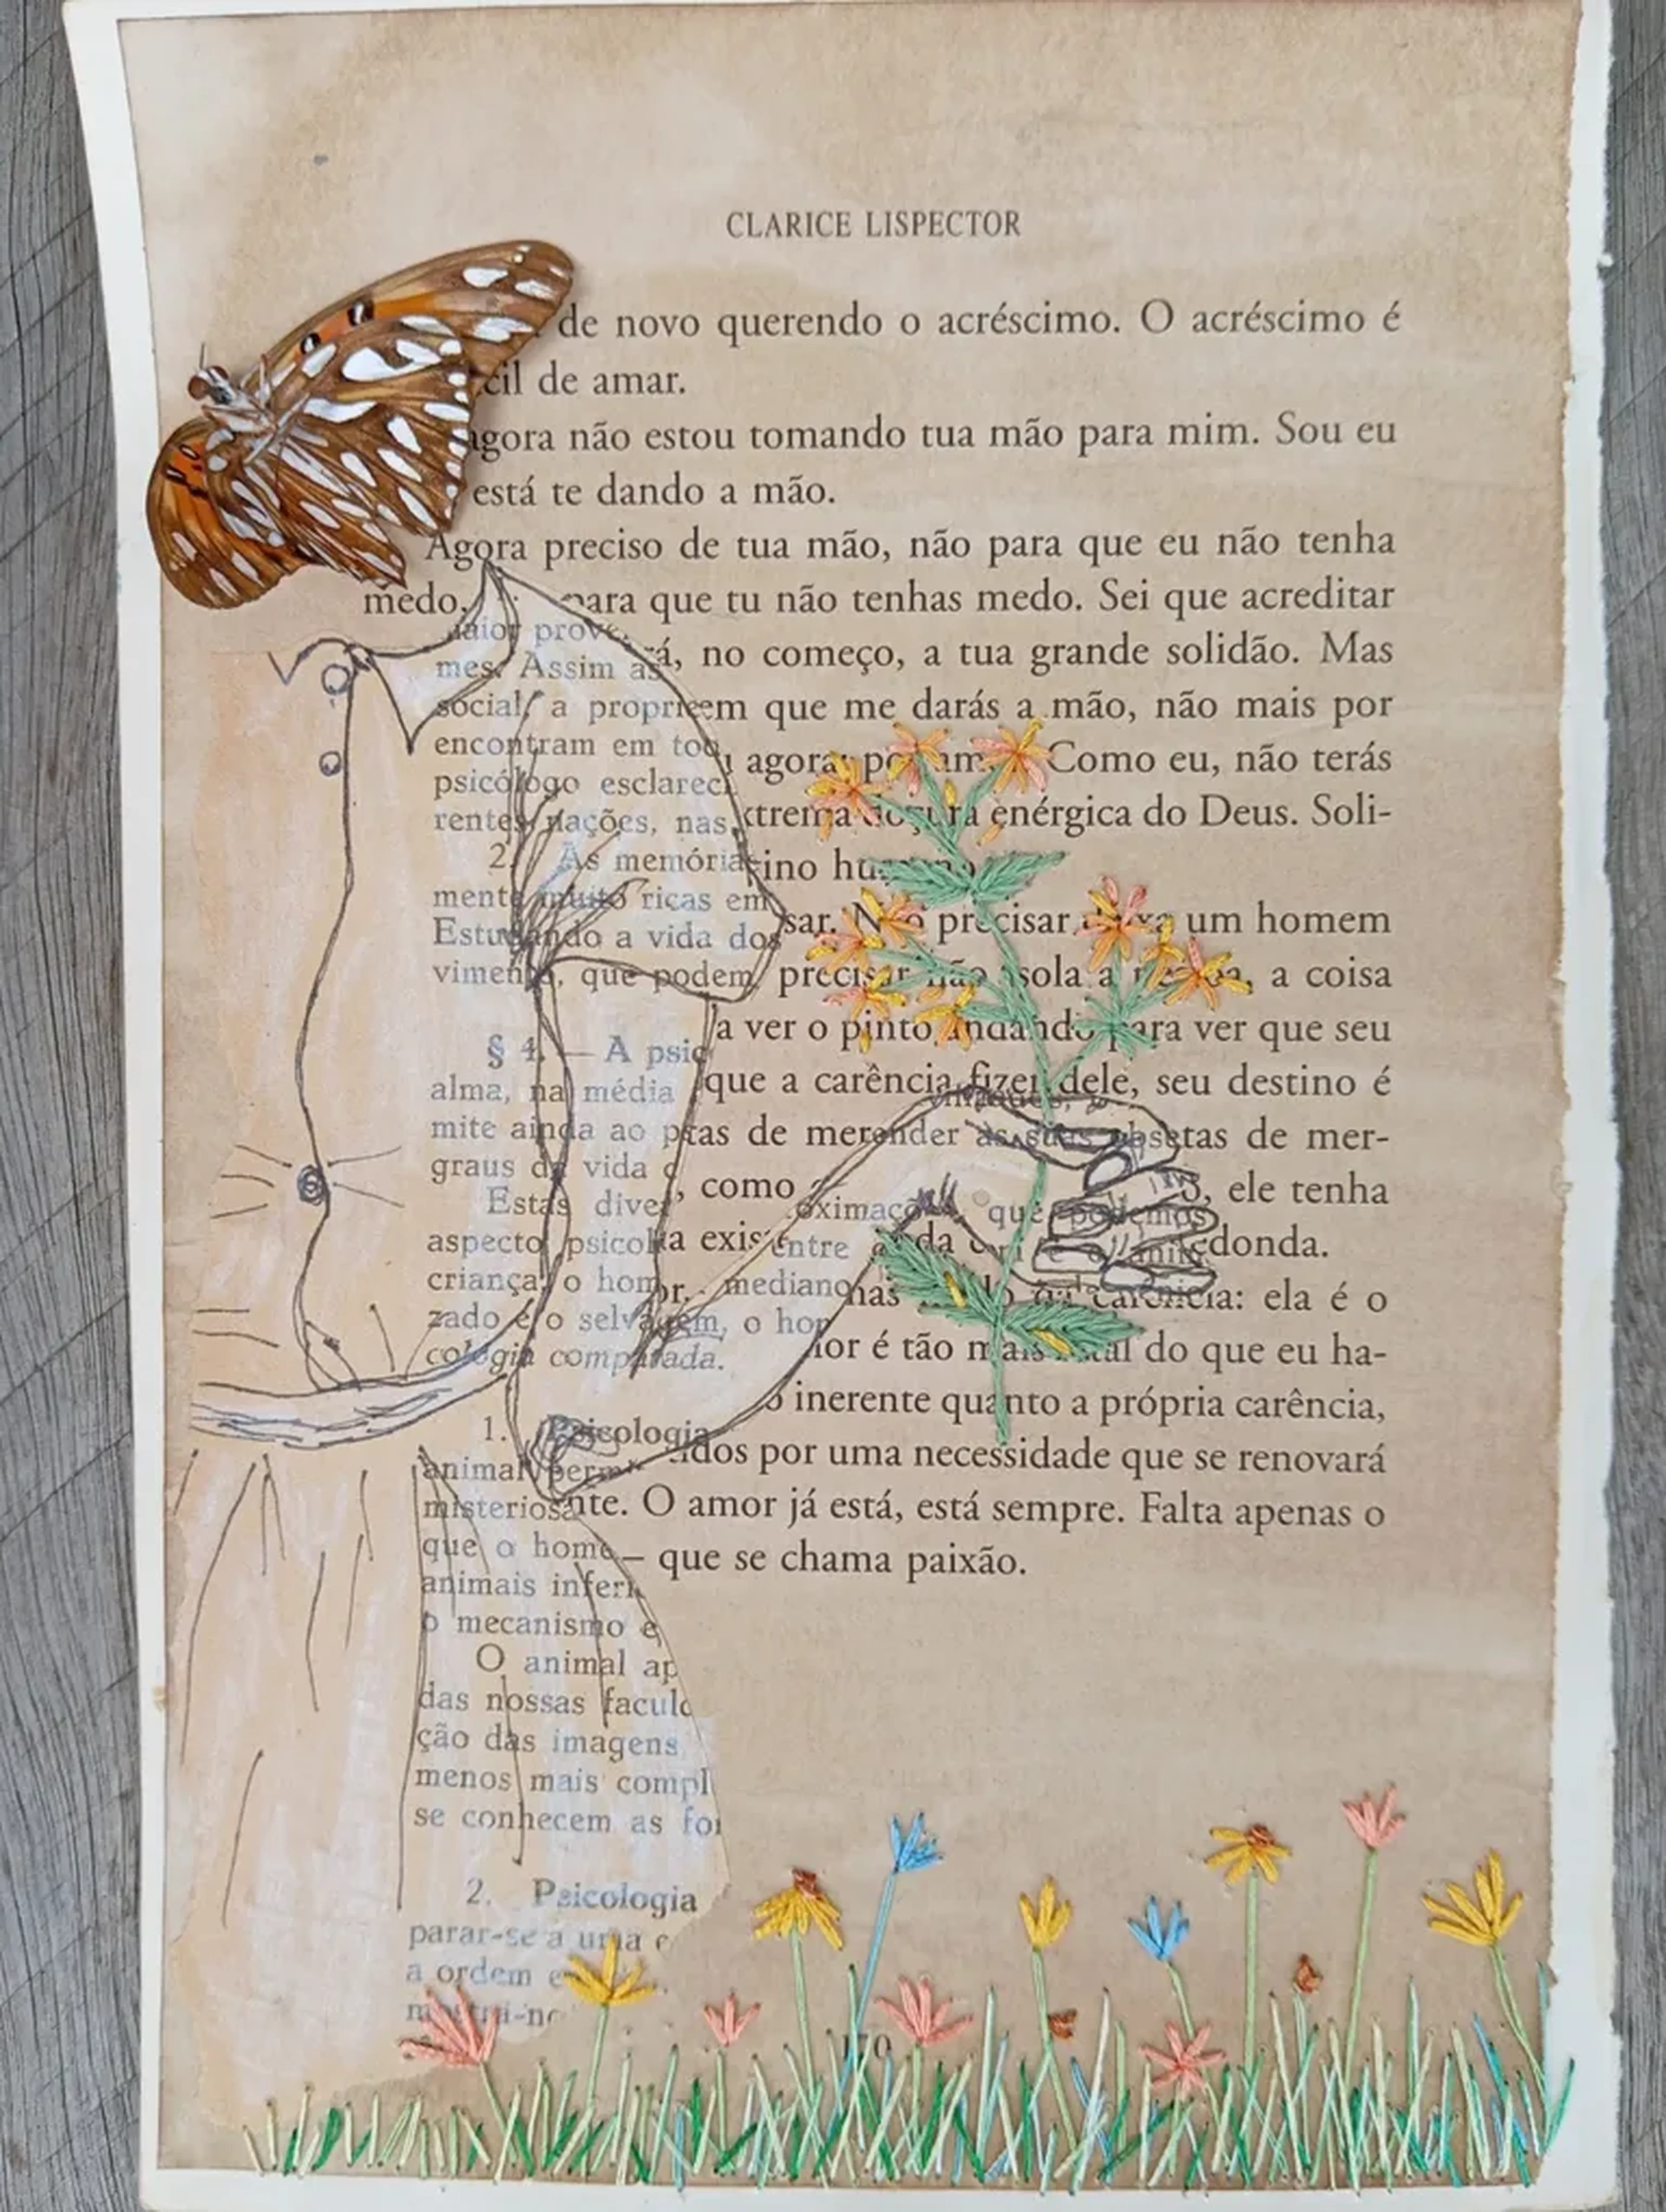 CLARICE LISPECTOR
de novo querendo o acréscimo. O acréscimo é
cil de amar.
agora não estou tomando tua mão para mim. Sou eu
está te dando a mão.
Agora preciso de tua mão, não para que eu não tenha
medo, para que tu não tenhas medo. Sei que acreditar
rá, no começo, a tua grande solidão. Mas
em que me darás a mão, não mais por
agora, Como eu, não terás
xtrema doçura enérgica do Deus. Soli-
ino
sar. Não precisar deixa um homem
precisar não isola a a coisa
a ver o pinto andando para ver que seu
que a carência fizer dele, seu destino é
tas de mer-
, como ele tenha
a exis donda.
or.
carência: ela é o
ior é tão mais fatal do que eu ha-
inerente quanto a própria carência,
idos por uma necessidade que se renovará
nte. O amor já está, está sempre. Falta apenas o
– que se chama paixão.
170
maior prov
mes. Assim as
social, a propri
encontram em tod
psicólogo esclareci
rentes nações, nas
2. As memória
mente muito ricas em
Estudando a vida dos
vimento, que podem
§ 4. — A psic
alma, na média
mite ainda ao p
graus da vida
Estas diver
aspecto psicol
criança, o hom
zado e o selvagem, o hom
cologia comparada.
1. Psicologia
animal permi
misterios
que o home
animais inferi
o mecanismo e
O animal ap
das nossas faculd
ção das imagens
menos mais compl
se conhecem as for
2. Psicologia
parar-se a uma
a ordem e
as suas
oximaçõ que podemos
entre ainda
mediano